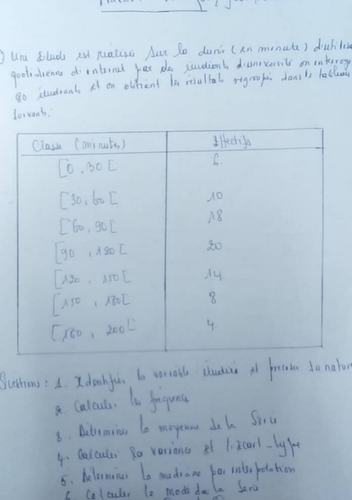 Une étude est réalisée sur la durée (en minute) d'utilisa
quotidienne d'internet par des étudiants d'université on interroge
80 étudiants et on obtient les résultats regroupés dans le tableau
suivant:
Classe (minutes) Effectifs
[0, 30[ 6
[30, 60[ 10
[60, 90[ 18
[90, 120[ 20
[120, 150[ 14
[150, 180[ 8
[180, 200[ 4
Questions: 1. Identifier la variable étudiée et préciser sa nature
2. Calculer les fréquence
3. Determiner la moyenne de la Série
4. Calculer sa variance et l'écart-type
5. Determiner la mediane par interpolation
6. Calculer le mode de la Serie